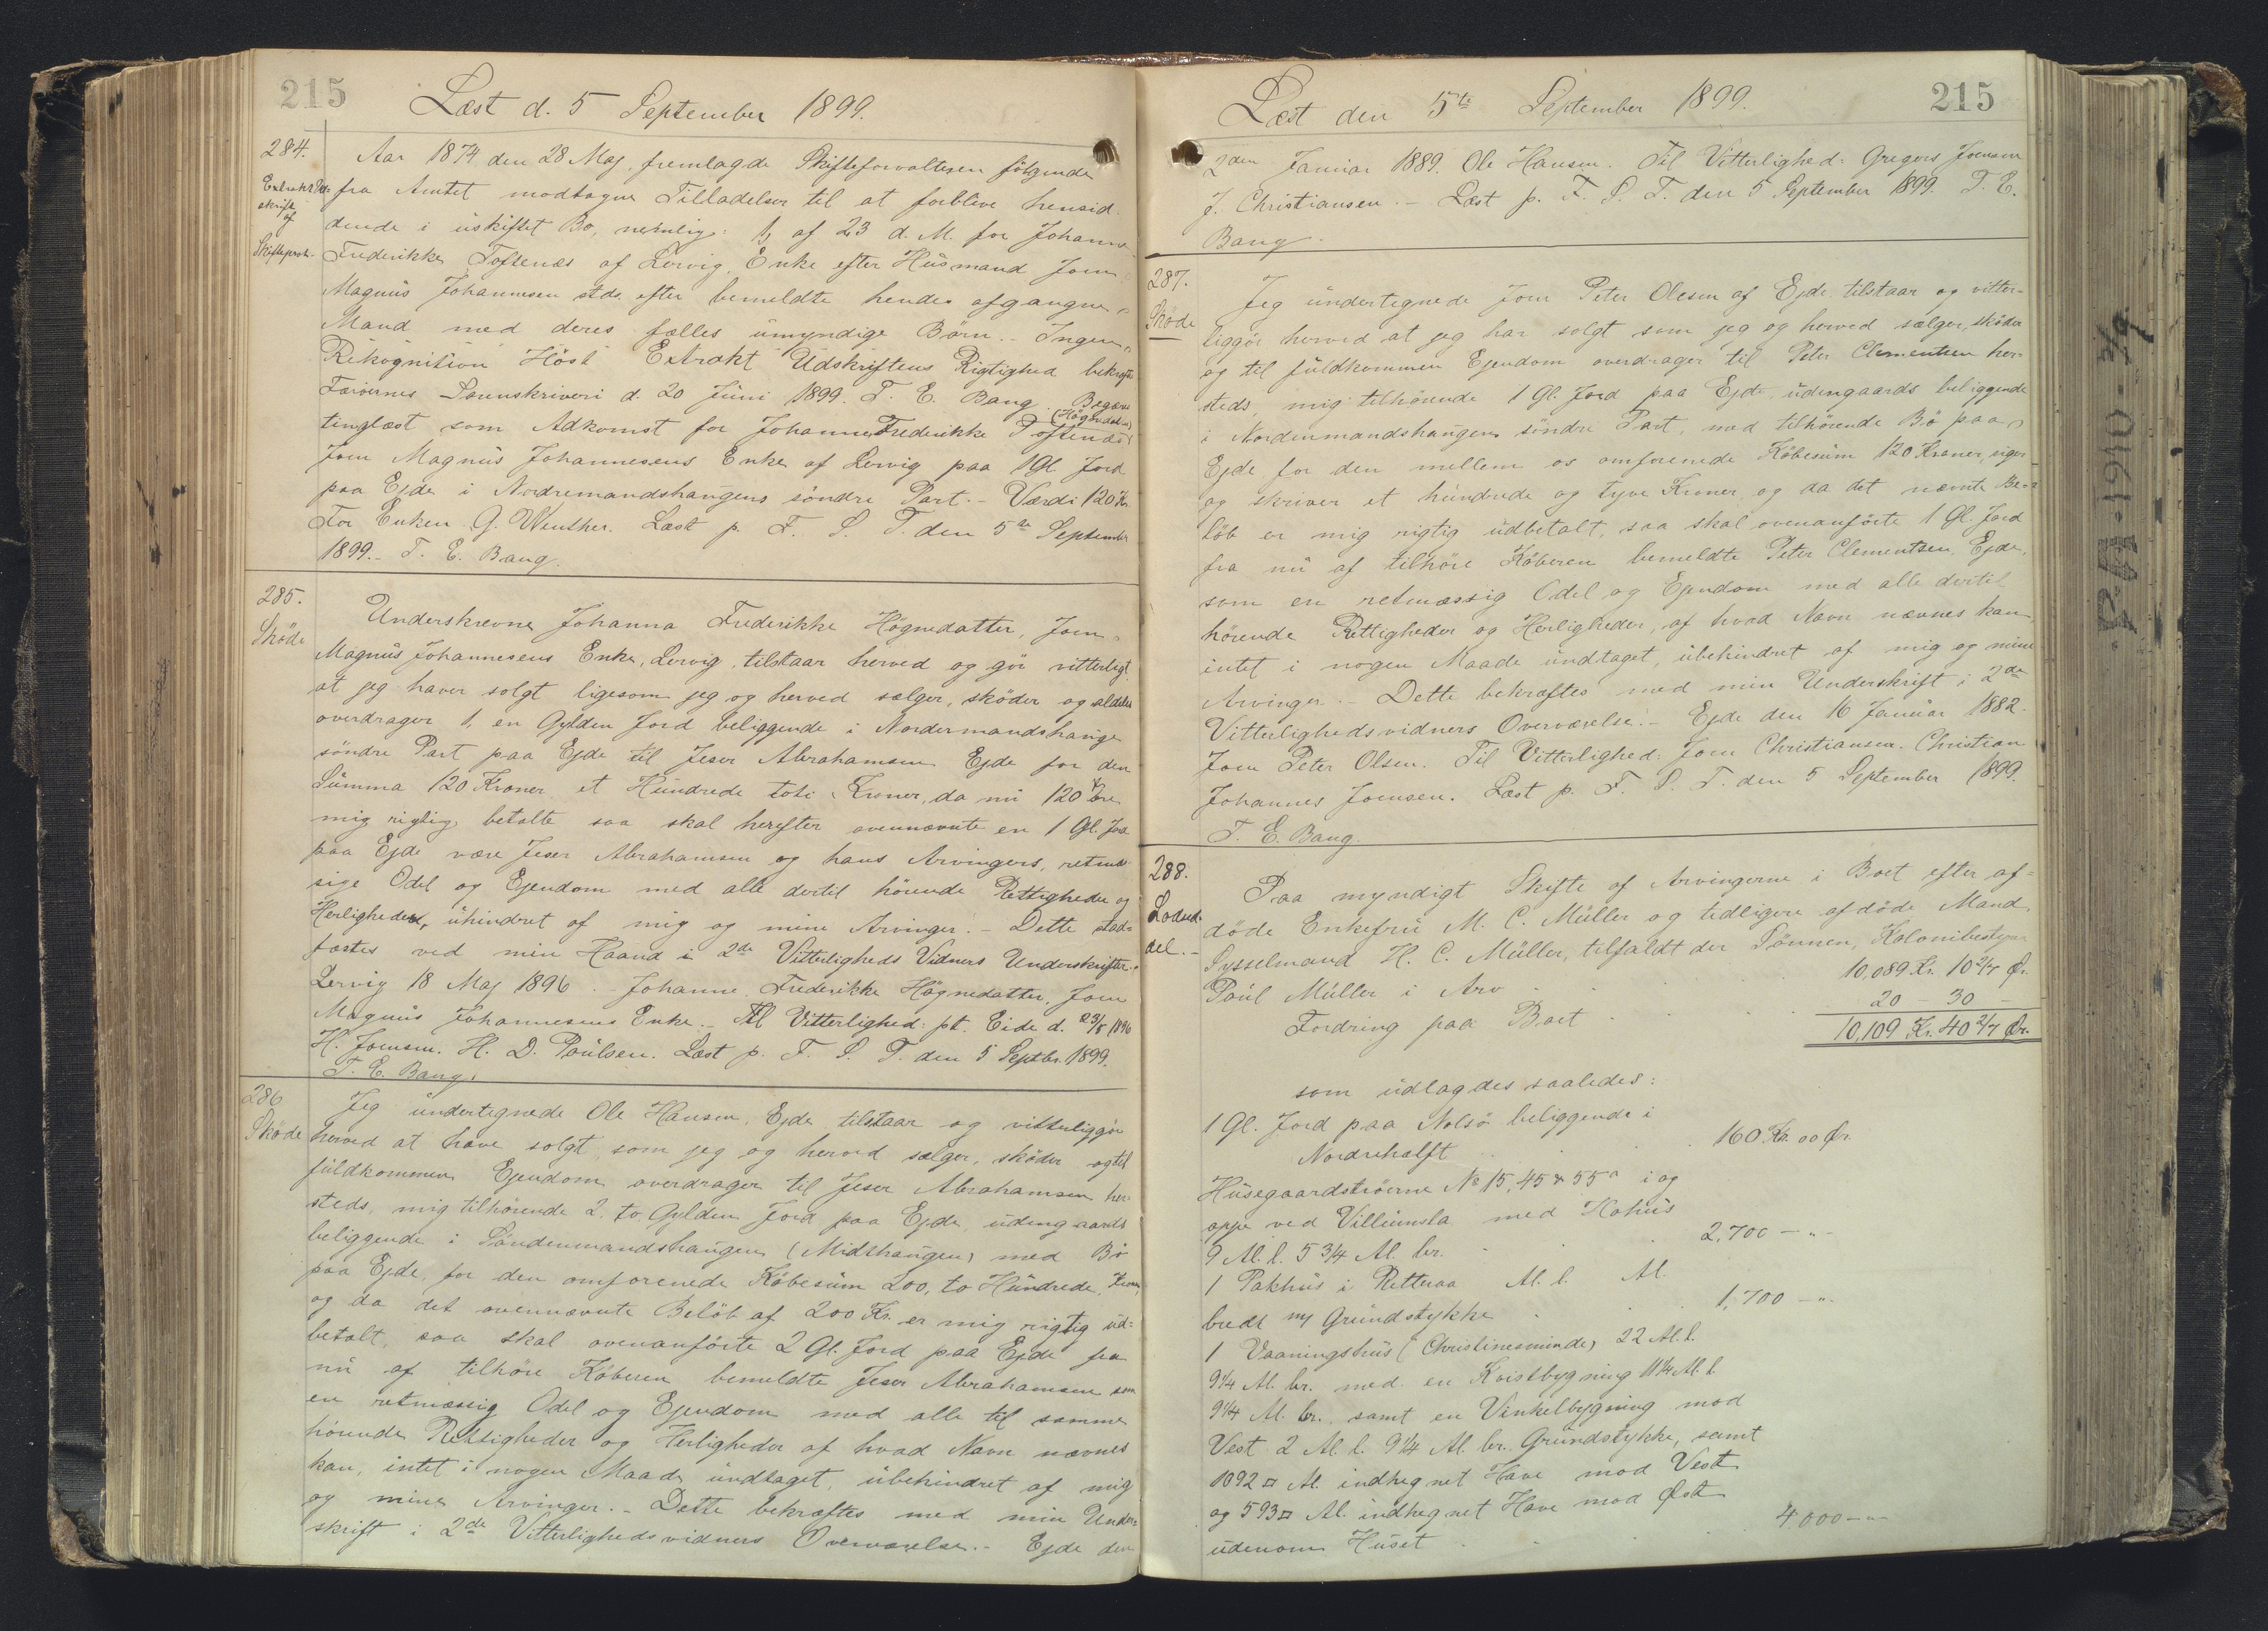 215
Læst d. 5 September 1899.
284.
Extrakt Ud-
skrift
af
Skifteprot.
Aar 1874 den 28 Maj fremlagde Skifteforvalteren følgende
fra Amtet modtagne Tilladelser til at forblive hensid
dende i uskiftet Bo, nemlig: 1, af 23 d. M. for Johanne
Frederikke Toftenæs af Lervig, Enke efter Husmand Joen
Magnus Johannesen stds. efter bemeldte hendes afgangne
Mand med deres fælles umyndige Börn. - Ingen
Rekognition Höst Extrakt Udskriftens Rigtighed bekræftes
Færöernes Sorenskriveri d. 20 Juni 1899. T. E. Bang. Begæres
tinglæst som Adkomst for Johanne Frederikke Toftenæs (Högnedatter)
Joen Magnus Johannesens Enke af Lervig paa 1 Gl. Jord
paa Ejde i Nordremandshaugens söndre Part. - Værdi 120 Kr.
For Enken G. Wenther. Læst p. F. S. T. den 5te September
1899. - T. E. Bang.
285.
Sköde
Underskrevne Johanna Frederikke Högnedatter, Joen
Magnus Johannesens Enke, Lervig, tilstaar herved og gör vitterligt,
at jeg haver solgt ligesom jeg og herved sælger, sköder og aldeles
overdrager 1, en Gylden Jord beliggende i Nordermandshauge
söndre Part paa Ejde til Jeser Abrahamsen Ejde for den
Summa 120 Kroner et Hundrede toti Kroner, da nu 120 Kr ere
mig rigtig betalte saa skal herefter ovennævnte en 1 Gl. Jord
paa Ejde være Jeser Abrahamsen og hans Arvingers, retmæs
sige Odel og Ejendom med alle dertil hörende Rettigheder og
Herligheder, uhindret af mig og mine Arvinger. - Dette stad-
fæstes ved min Haand i 2de Vitterligheds Vidners Underskrifter.
Lervig 18 Maj 1896. - Johanne Frederikke Högnedatter, Joen
Magnus Johannesens Enke. - Til Vitterlighed: pt. Eide d. 23/5 1896
H. Joensen. H. D. Poulsen. Læst p. F. S. T. den 5 Septbr. 1899.
T. E. Bang.
286
Sköde
Jeg undertegnede Ole Hansen, Ejde tilstaar og vitterliggör
herved at have solgt, som jeg og herved sælger, sköder og til
fuldkommen Ejendom overdrager til Jeser Abrahamsen her-
steds, mig tilhörende 2. to Gylden Jord paa Ejde, udengaards
beliggende i Söndenmandshaugen (Midthaugen) med Bö
paa Ejde, for den omforenede Köbesum 200, to Hundrede, Kroner,
og da det ovennævnte Belöb af 200 Kr. er mig rigtig ud-
betalt, saa skal ovenanförte 2 Gl. Jord paa Ejde fra
nu af tilhöre Köberen bemeldte Jeser Abrahamsen som
en retmæssig Odel og Ejendom med alle til samme
hörende Rettigheder og Herligheder af hvad Navn nævnes
kan, intet i nogen Maade undtaget, ubehindret af mig
og mine Arvinger. - Dette bekræftes med min Under-
skrift i 2de Vitterlighedsvidners Overværelse. - Ejde den
Læst den 5te September 1899.
215
2den Januar 1889. Ole Hansen. Til Vitterlighed: Gregers Joensen
J. Christiansen. - Læst p. F. S. T. den 5 September 1899. T. E.
Bang.
287.
Sköde
Jeg undertegnede Joen Peter Olesen af Ejde tilstaar og vitter-
liggör herved at jeg har solgt som jeg og herved sælger, sköder
og til fuldkommen Ejendom overdrager til Peter Clementsen her-
steds, mig tilhörende 1 Gl. Jord paa Ejde, udengaards beliggende
i Nordenmandshaugens söndre Part, med tilhörende Bö paa
Ejde for den mellem os omforenede Köbesum 120 Kroner, siger
og skriver et hundrede og tyve Kroner, og da det nævnte Be-
löb er mig rigtig udbetalt, saa skal ovenanförte 1 Gl. Jord
fra nu af tilhöre Köberen bemeldte Peter Clementsen, Ejde,
som en retmæssig Odel og Ejendom med alle dertil
hörende Rettigheder og Herligheder, af hvad Navn nævnes kan,
intet i nogen Maade undtaget, ubehindret af mig og mine
Arvinger. - Dette bekræftes med min Underskrift i 2de
Vitterlighedsvidners Overværelse. - Ejde den 16 Januar 1882.
Joen Peter Olsen. Til Vitterlighed: Joen Christiansen. Christian
Johannes Joensen. Læst p. F. S. T. den 5 September 1899.
T. E. Bang.
288.
Lodsed-
del. -
Paa myndigt Skifte af Arvingerne i Boet efter af-
döde Enkefru M. C. Müller og tidligere afdöde Mand,
Sysselmand H. C. Müller, tilfaldt der Sönnen, Kolonibestyrer
Poul Müller i Arv 10,089 Kr. 10 2/7 Ör.
Fordring paa Boet 20 - 30 -
10,109 Kr. 40 2/7 Ör.
som udlagdes saaledes:
1 Gl. Jord paa Nolsö beliggende i
Nordrehalft 160 Kr. 00 Ör.
Husegaardströerne No 15, 45 & 55a i og
oppe ved Villiumsla med Kohus
9 Al. l. 5 3/4 Al. br. 2,700 - "-
1 Pakhus i Retteraa Al. l. Al.
bredt m/ Grundstykke 1,700 - "-
1 Vaaningshus (Christinesminde) 22 Al. l.
9 1/4 Al. br. med en Kvistbygning 11 1/4 Al. l.
9 1/4 Al. br. samt en Vinkelbygning mod
Vest 2 Al. l. 9 1/4 Al. br. Grundstykke, samt
1092 □ Al. indhegnet Have mod Vest
og 593 □ Al. indhegnet Have mod Öst
udenom Huset 4,000 - "-